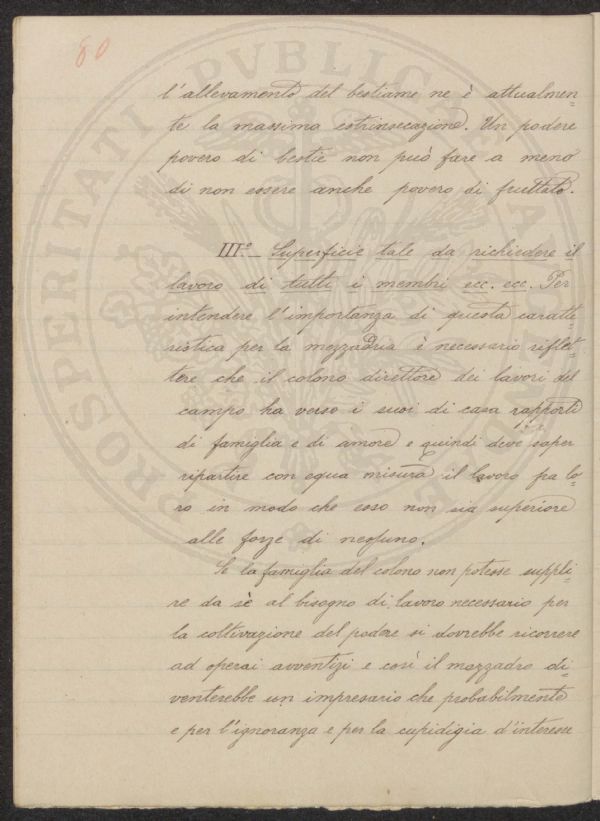 80
l'allevamento del bestiame ne è attualmen-
te la massima estrinsecazione. Un podere
povero di bestie non può fare a meno
di non essere anche povero di fruttato.
III.º_ Superficie tale da richiedere il
lavoro di tutti i membri ecc. ecc. Per
intendere l'importanza di questa caratte-
ristica per la mezzadria è necessario riflet-
tere che il colono direttore dei lavori del
campo ha verso i suoi di casa rapporti
di famiglia e di amore e quindi deve saper
ripartire con equa misura il lavoro fra lo-
ro in modo che esso non sia superiore
alle forze di nessuno.
Se la famiglia del colono non potesse suppli-
re da sè al bisogno di lavoro necessario per
la coltivazione del podere si dovrebbe ricorrere
ad operai avventizi e così il mezzadro di-
venterebbe un impresario che probabilmente
e per l'ignoranza e per la cupidigia d'interesse
PROSPERITATI PVBLICAE